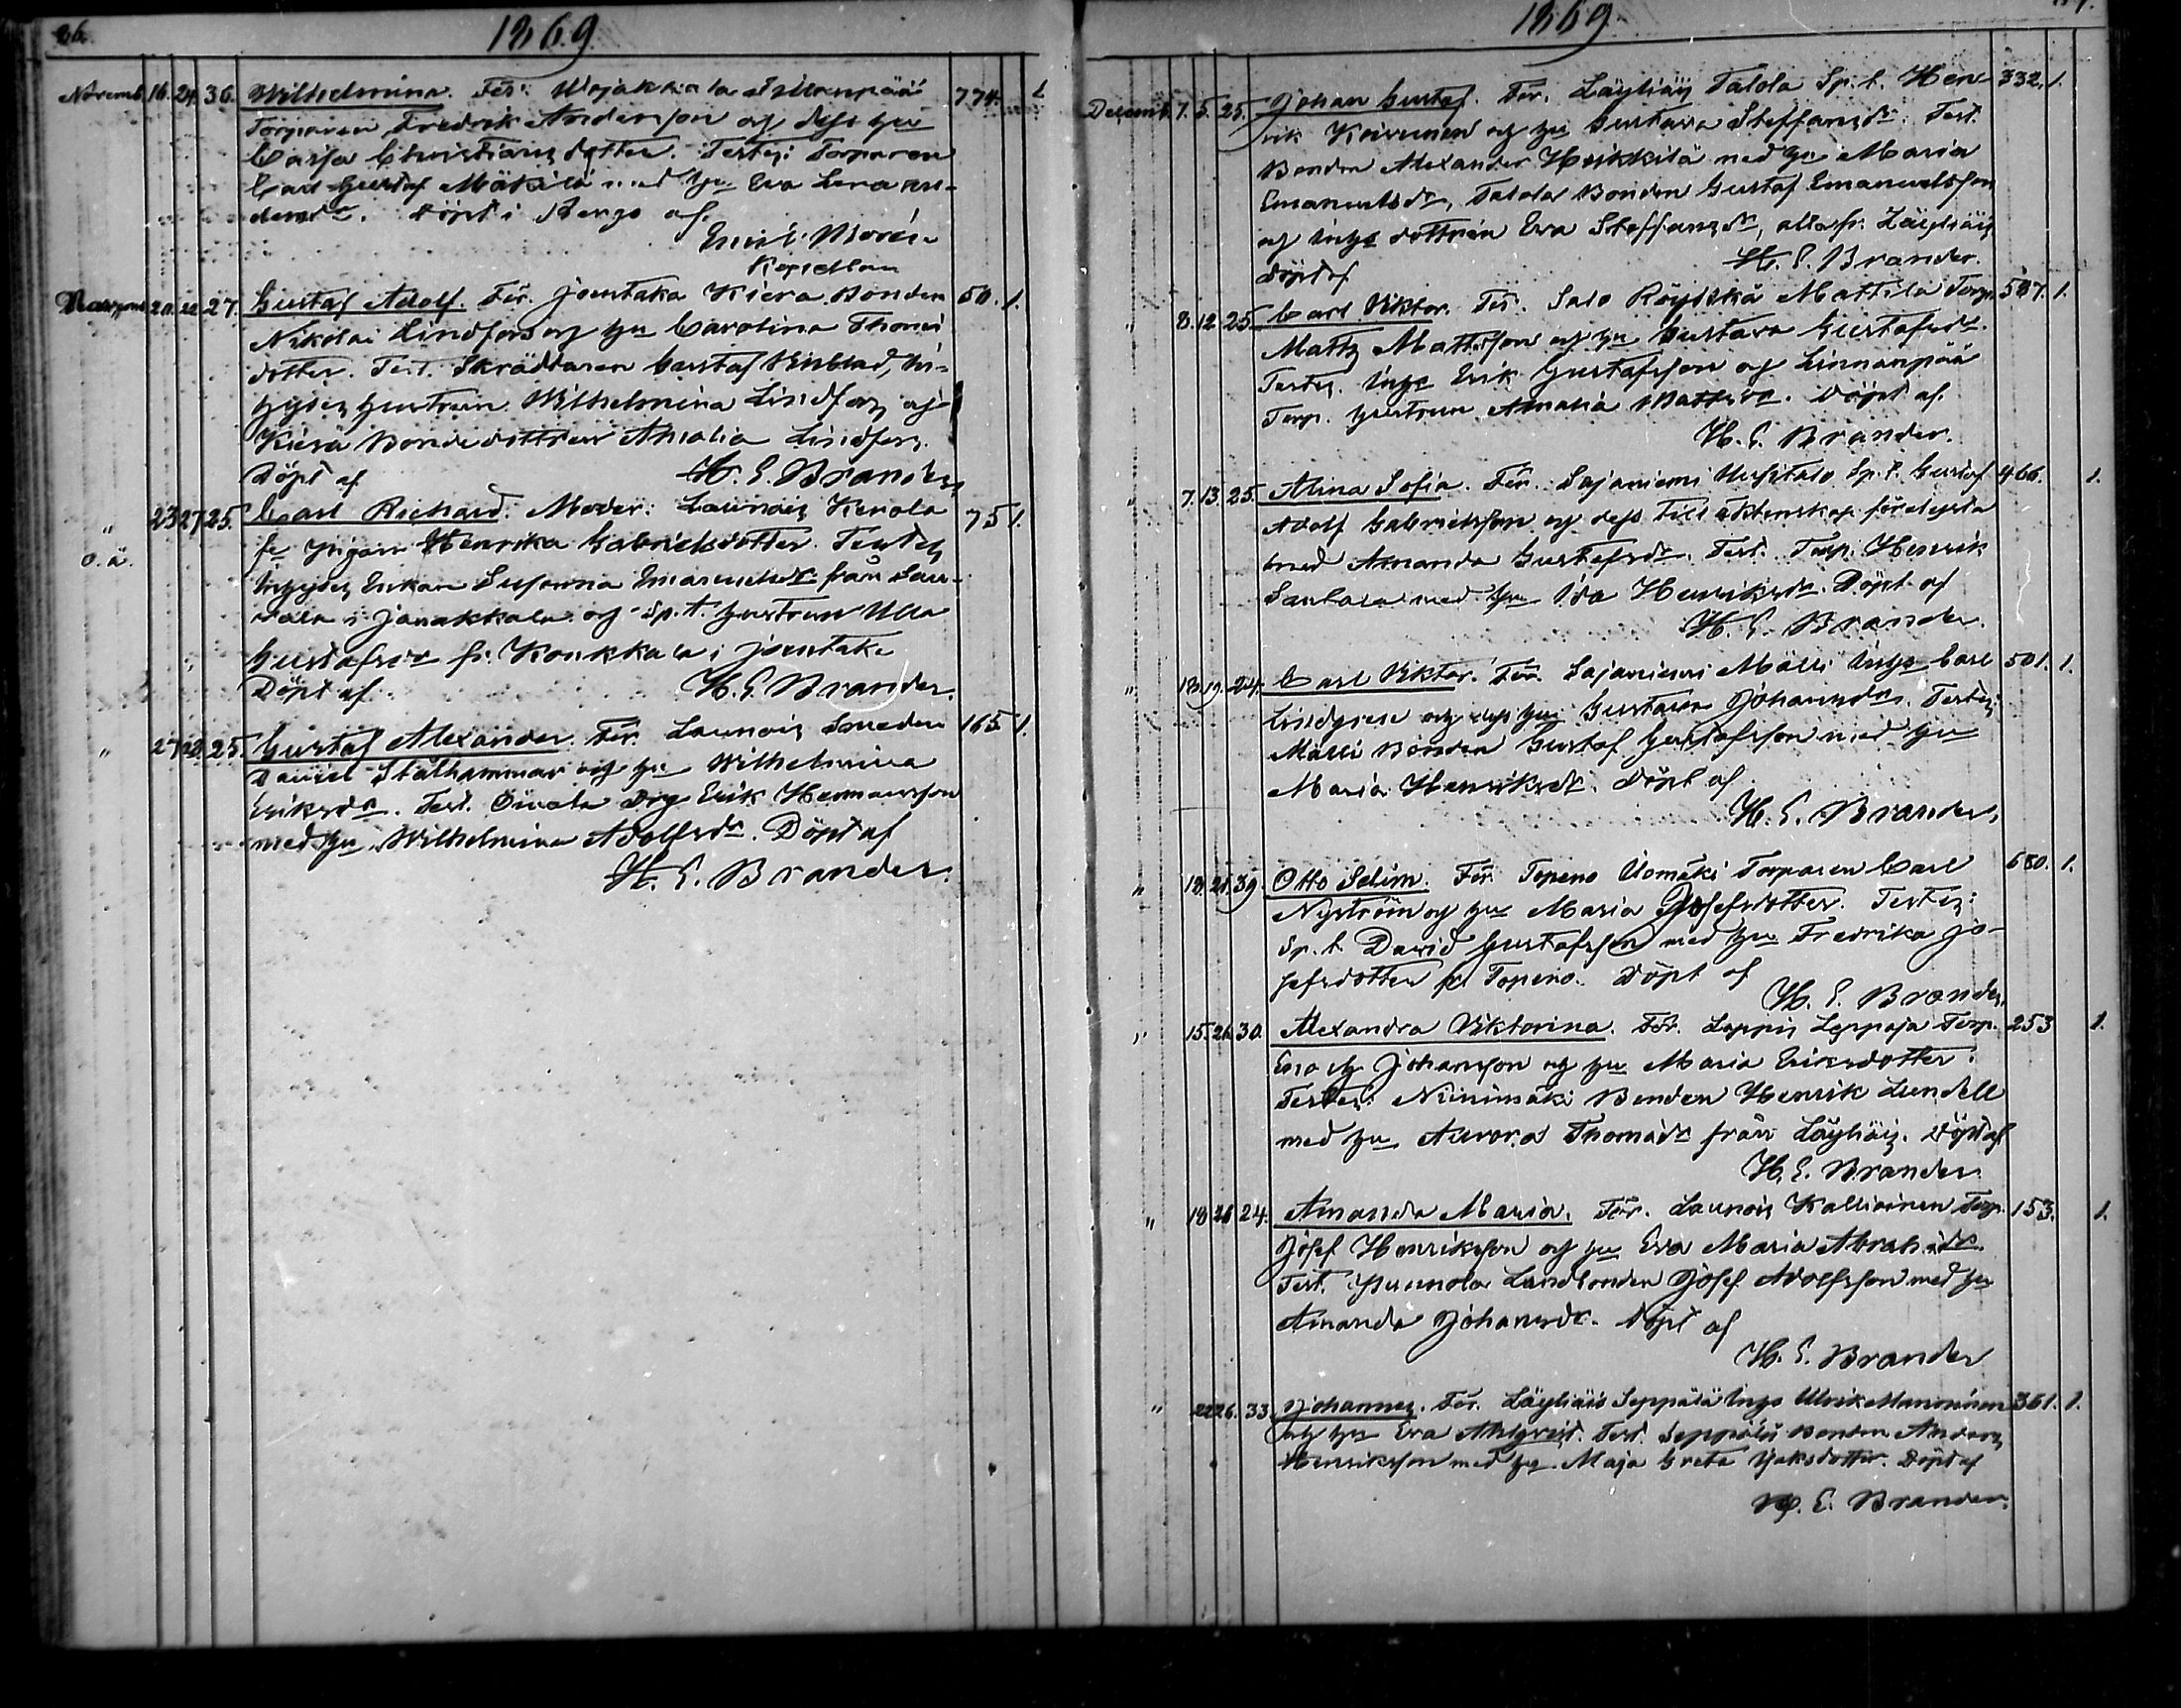 26.
1869
Novemb. 16. 24. 36. Wilhelmina. För: Wojakkala Sillanpää 774. 1
Torparen Fredrik Andersson och dess hu
Carsa Christiansdotter. Testes: Torparen
Carl Gustaf Mäkilä med hu Eva Lena
Döpt i Rengo af
Emil Morén
Kapellan
20. 27. Gustaf Adolf. För. Joentaka Kiera Bonden 50. 1.
Nikolai Lindfors och hu Carolina Thomas
dotter. Test. Skräddaren Gustaf Wiklad, In-
hyses hustrun Wilhelmina Lindfors och
Kiera Bondedottren Amalia Lindfors.
Döpt af H. E. Brander
" 23 27 25. Carl Richard. Moder: Launois Kerola 75 1.
o. ä. pigan Henrika Gabrielsdotter. Testes
Inhyses Enkan Susanna Emanuelsdr från
i Janakkala och Sp. t. hustrun Ulla
Gustafsdr fr. Konkkala i Joentaka
Döpt af H. E. Brander.
" 27 28 25. Gustaf Alexander. För. Launois Smeden 165 1.
Daniel Stålhammar och hu Wilhelmina
Eriksdr. Test. Drg Erik Hermansson
med hu Wilhelmina Adolfsdr. Döpt af
H. E. Brander.
1869.
Decemb. 1. 5. 25. Johan Gustaf. För. Läyliäis Talola Sp. t. Hen 332. 1.
rik Koivunen och hu Gustava Steffansdr. Test.
Bonden Alexander Heikkilä med hu Maria
Emanuelsdr, Talola Bonden Gustaf Emanuelsson
och Inhys dottren Eva Steffansdr, alla fr. Läyliäis
Döpt af H. E. Brander.
" 8. 12. 25. Carl Viktor. För. Salo Röyskä Mattila Torp. 587. 1.
Matts Mattsson och hu Gustava Gustafsdr.
Testes. Inhys Erik Gustafsson och Linnanpää
Torp. hustrun Amalia Mattsdr. Döpt af
H. E. Brander.
" 7. 13. 25. Alina Sofia. För. Sajaniemi Uusitalo Sp. t. Gustaf 466. 1.
Adolf Gabrielsson och dess till äktenskap förelysta
med Amanda Gustafsdr. Test. Torp. Henrik
Santala med hu Ida Henriksdr. Döpt af
H. E. Brander.
" 13. 19. 24. Carl Viktor. För. Sajaniemi Mälli Inhys Carl 501. 1.
Lindgren och dess hu Gustava Johansdr. Testes
Mälli Bonden Gustaf Gustafsson med hu
Maria Henriksdr. Döpt af
H. E. Brander.
" 18. 21. 39. Otto Selim. För. Topeno Uomäki Torparen Carl 680. 1.
Nyström och hu Maria Josefsdotter. Testes:
Sp. t. David Gustafsson med hu Fredrika Jo-
sefsdotter fr. Topeno. Döpt af
H. E. Brander.
" 15. 26. 30. Alexandra Viktorina. För. Loppis Leppäoja Torp. 253 1.
Johansson och hu Maria Eriksdotter.
Testes: Niinimäki Bonden Henrik Lundell
med hu Aurora Thomasdr från Läyliäis. Döpt af
H. E. Brander.
" 18 26 24. Amanda Maria. För. Launois Kallioinen Torp. 153. 1.
Josef Henriksson och hu Eva Maria Abrahsdr.
Test. Landbonden Josef Adolfsson med hu
Amanda Johansdr. Döpt af
H. E. Brander
" 22 26. 33. Johannes. För. Läyliäis Seppälä Inhys Ulrik Manninen 361. 1.
och hu Eva Ahlqvist. Test. Seppälä Bonden Anders
Henriksson med hu Maja Greta Isaksdotter. Döpt af
H. E. Brander.